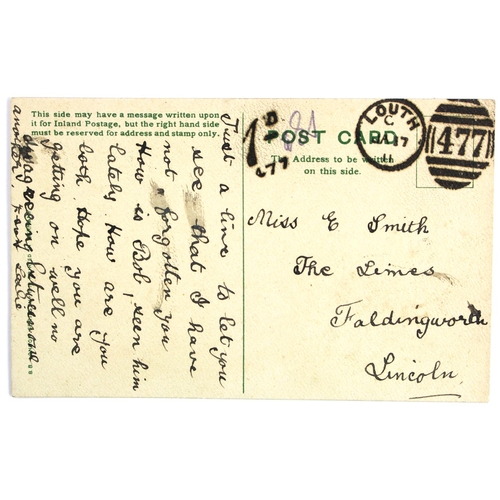 This side may have a message written upon
it for Inland Postage, but the right hand side
must be reserved for address and stamp only.
POST CARD
The Address to be written
on this side.
1D
477
LOUTH
C
17
477
Just a line to let you
see that I have
not forgotten you
How is Bob, seen him
lately How are you
both Hope you are
getting on well no
disagreeing between one
another,
Miss E Smith
The Limes
Faldingworth
Lincoln